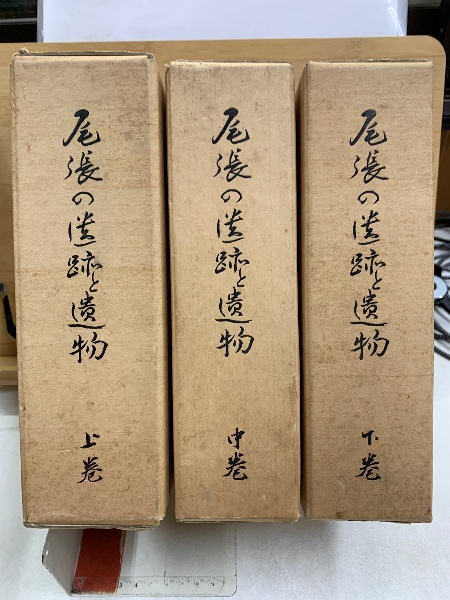 尾張の遺跡と遺物
上巻
尾張の遺跡と遺物
中巻
尾張の遺跡と遺物
下巻